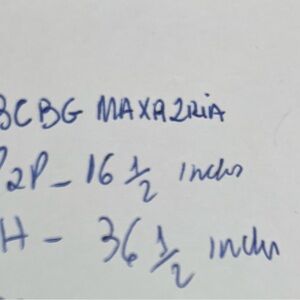 BCBG MAXAZRIA
P2P - 16 1/2 inchs
H - 36 1/2 inchs